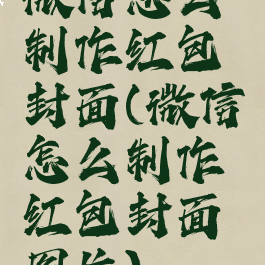 微信怎么
制作红包
封面(微信
怎么制作
红包封面
图片)